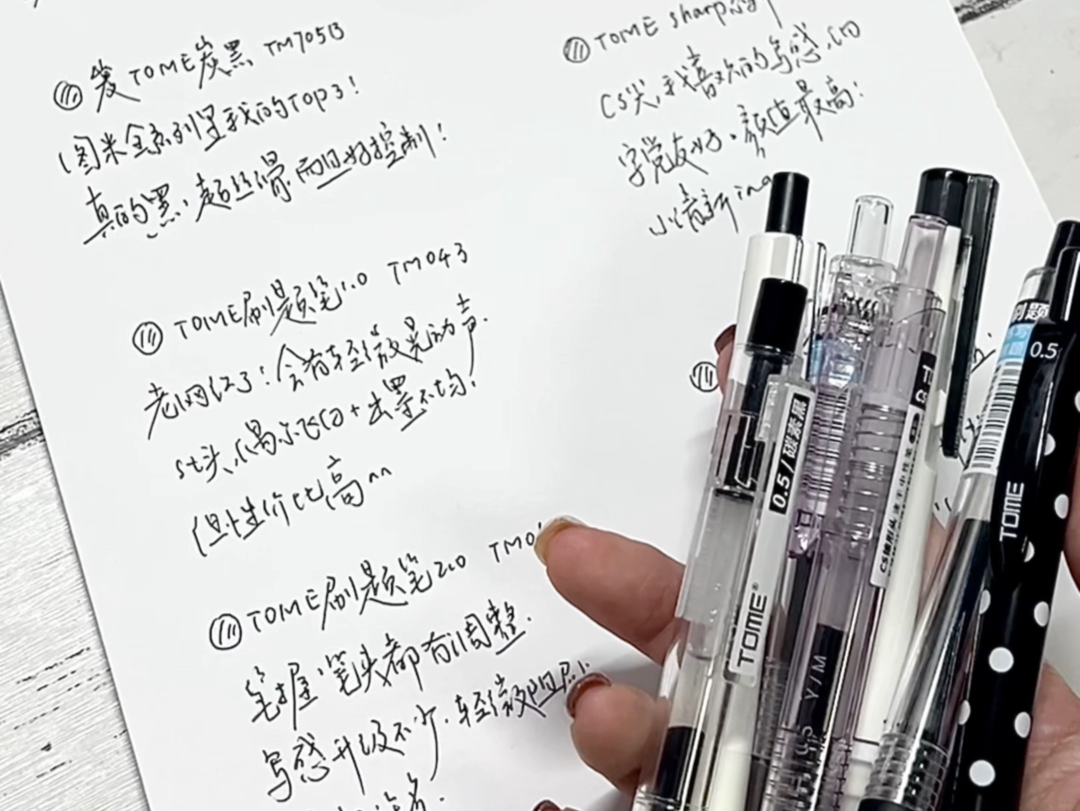 炭 TOME炭黑 TM705B
图米全系列里我的TOP3！
真的黑、超丝滑、而且好控制！
TOME刷题笔1.0 TM043
老网红了！会有轻微晃动声.
st头、偶尔飞白+出墨不均！
但性价比高^^
TOME刷题笔2.0 TM0
笔握、笔头都有调整.
写感升级不少.轻微阻尼
TOME sharp
CS尖、我喜欢的写感、
字党友好、颜值最高！
小清新ing
0.5/碳素黑
TOME
CS Y/M
刷题
0.5
TOME